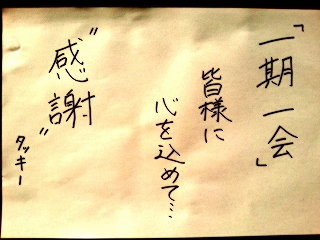 「一期一会」
皆様に
心を込めて…
〝感謝〟
タッキー